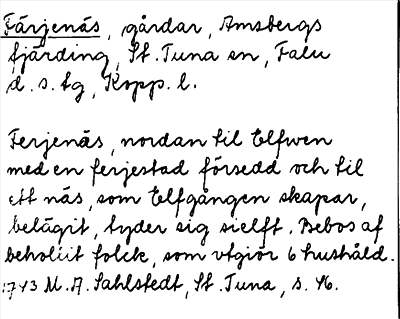 Färjenäs, gårdar, Amsbergs
fjärding, St. Tuna sn, Falu
d.s. tg, Kopp. l.
Ferjenäs, nordan til Elfwen
med en ferjestad försedd och til
ett näs, som Elfgången skapar,
belägit, lyder sig sielft. Bebos af
beholiit folck, som vtgiör 6 hushåld.
1743 M. A. Sahlstedt, St. Tuna, s. 46.